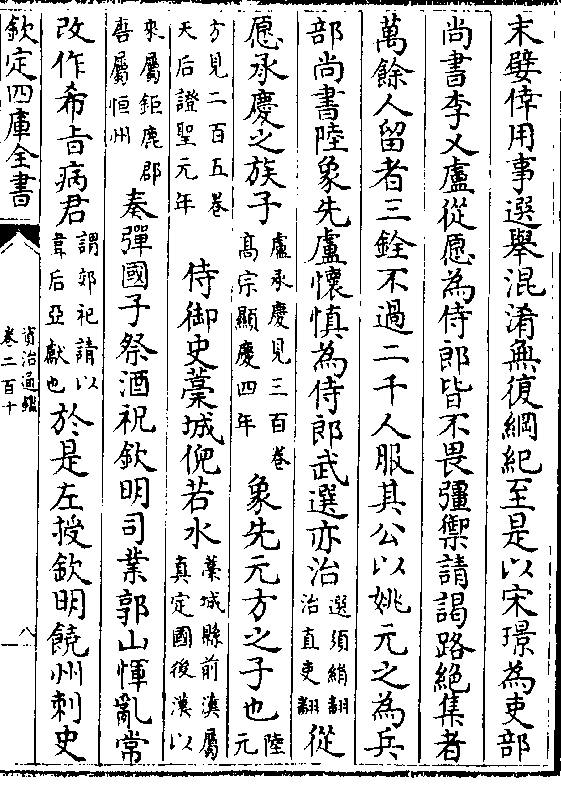 末嬖倖用事選舉混淆無復綱紀至是以宋璟為吏部
尚書李乂盧從愿為侍郎皆不畏彊禦請謁路絶集者
萬餘人留者三銓不過二千人服其公以姚元之為兵
部尚書陸象先盧懷慎為侍郎武選亦治選須絹翻治直吏翻從
愿承慶之族子盧承慶見三百卷高宗顯慶四年象先元方之子也陸元
方見二百五卷天后證聖元年侍御史藁城倪若水藁城縣前漢屬真定國後漢以
來屬鉅鹿郡唐屬恒州奏彈國子祭酒祝欽明司業郭山惲亂常
改作希旨病君謂郊祀請以韋后亞獻也於是左授欽明饒州刺史
欽定四庫全書
資治通鑑
卷二百十
八